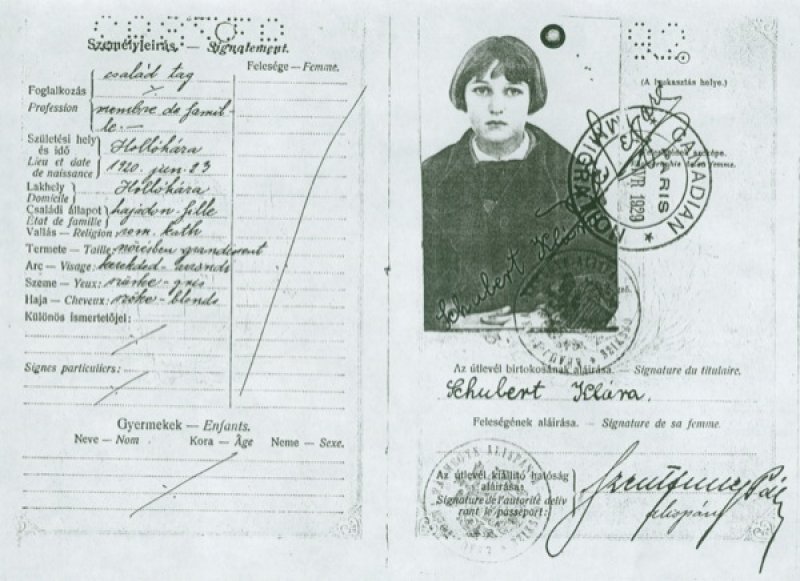 Személyleírás. — Signalement.
Felesége — Femme.
család tag
Foglalkozás
Profession
membre de famil-
le. —
Születési hely
és idő
Lieu et date
de naissance
Hollóhára
1920. jun. 23
Lakhely
Domicile
Hollóhára
Családi állapot
État de famille
hajadon - fille
Vallás — Religion: rom. kath
Termete — Taille:
Arc — Visage:
Szeme — Yeux: szürke - gris
Haja — Cheveux: szőke - blonde
Különös ismertetőjei:
Signes particuliers:
Gyermekek — Enfants.
Neve — Nom Kora — Âge Neme — Sexe.
(A lyukasztás helye.)
CANADIAN
PARIS
1929
Schubert Klára
Az útlevél birtokosának aláírása. — Signature du titulaire.
Schubert Klára.
Feleségének aláírása. — Signature de sa femme.
Az útlevél kiállító hatóság
aláírása:
Signature de l'autorité déliv
rant le passeport:
alispán